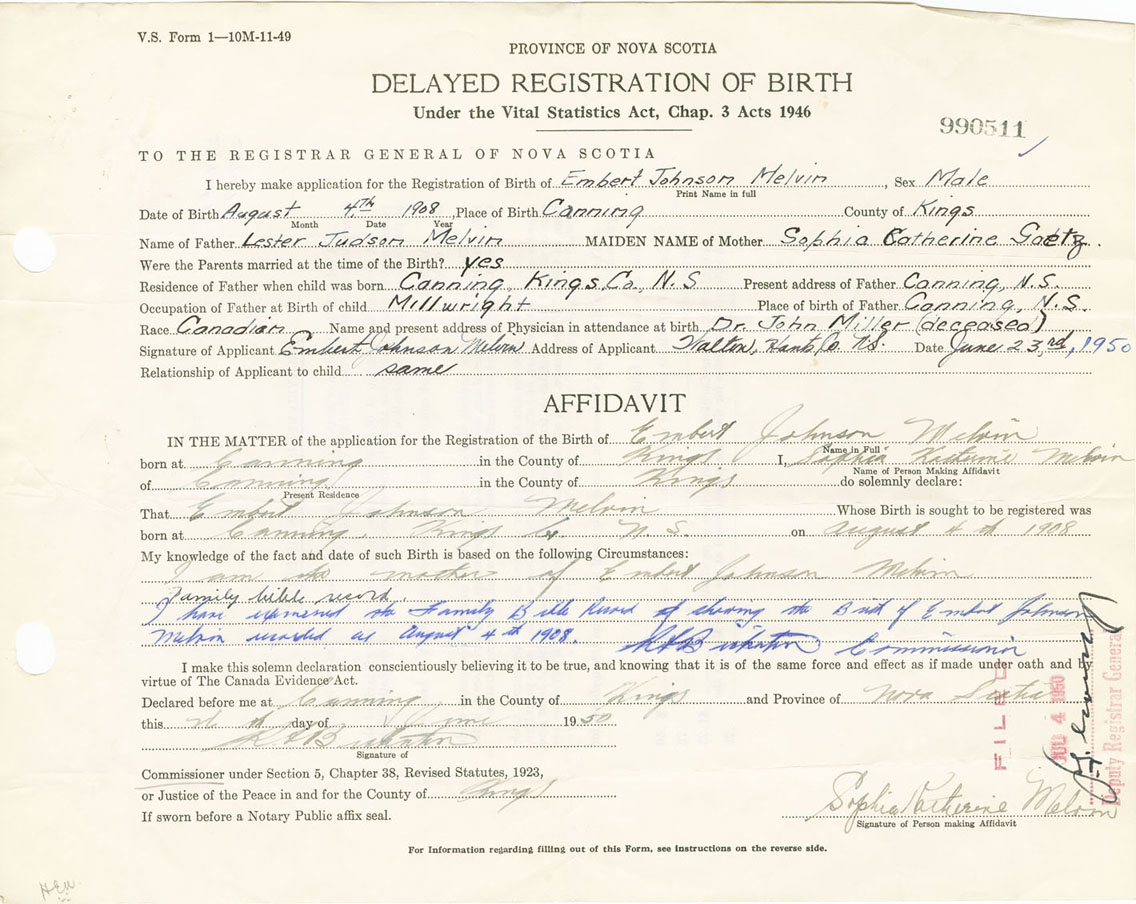 V.S. Form 1—10M-11-49
PROVINCE OF NOVA SCOTIA
DELAYED REGISTRATION OF BIRTH
Under the Vital Statistics Act, Chap. 3 Acts 1946
990511
TO THE REGISTRAR GENERAL OF NOVA SCOTIA
I hereby make application for the Registration of Birth of Embert Johnson Melvin, Sex Male
Print Name in full
Date of Birth August 4th 1908, Place of Birth Canning County of Kings
Month Date Year
Name of Father Lester Judson Melvin MAIDEN NAME of Mother Sophia Catherine Goetz.
Were the Parents married at the time of the Birth? yes
Residence of Father when child was born Canning, Kings, Co., N.S Present address of Father Canning, N.S.
Occupation of Father at Birth of child Millwright Place of birth of Father Canning, N.S.
Race Canadian Name and present address of Physician in attendance at birth Dr. John Miller (deceased)
Signature of Applicant Embert Johnson Melvin Address of Applicant Walton, Hants Co. N.S. Date June 23rd, 1950
Relationship of Applicant to child same
AFFIDAVIT
IN THE MATTER of the application for the Registration of the Birth of Embert Johnson Melvin
Name in Full
born at Canning in the County of Kings I, Sophia Katherine Melvin
Name of Person Making Affidavit
of Canning in the County of Kings do solemnly declare:
Present Residence
That Embert Johnson Melvin Whose Birth is sought to be registered was
born at Canning, Kings Co N.S. on August 4th 1908
My knowledge of the fact and date of such Birth is based on the following Circumstances:
I am the mother of Embert Johnson Melvin
Family bible record.
I have examined the Family Bible Record showing the Birth of Embert Johnson
Melvin recorded as August 4th 1908. Commissioner
I make this solemn declaration conscientiously believing it to be true, and knowing that it is of the same force and effect as if made under oath and by
virtue of The Canada Evidence Act.
Declared before me at Canning in the County of Kings and Province of Nova Scotia
this day of June 1950
Signature of
Commissioner under Section 5, Chapter 38, Revised Statutes, 1923,
or Justice of the Peace in and for the County of Kings
If sworn before a Notary Public affix seal.
Sophia Katherine Melvin
Signature of Person making Affidavit
FILED
JUL 4 1950
Deputy Registrar General
For Information regarding filling out of this Form, see instructions on the reverse side.